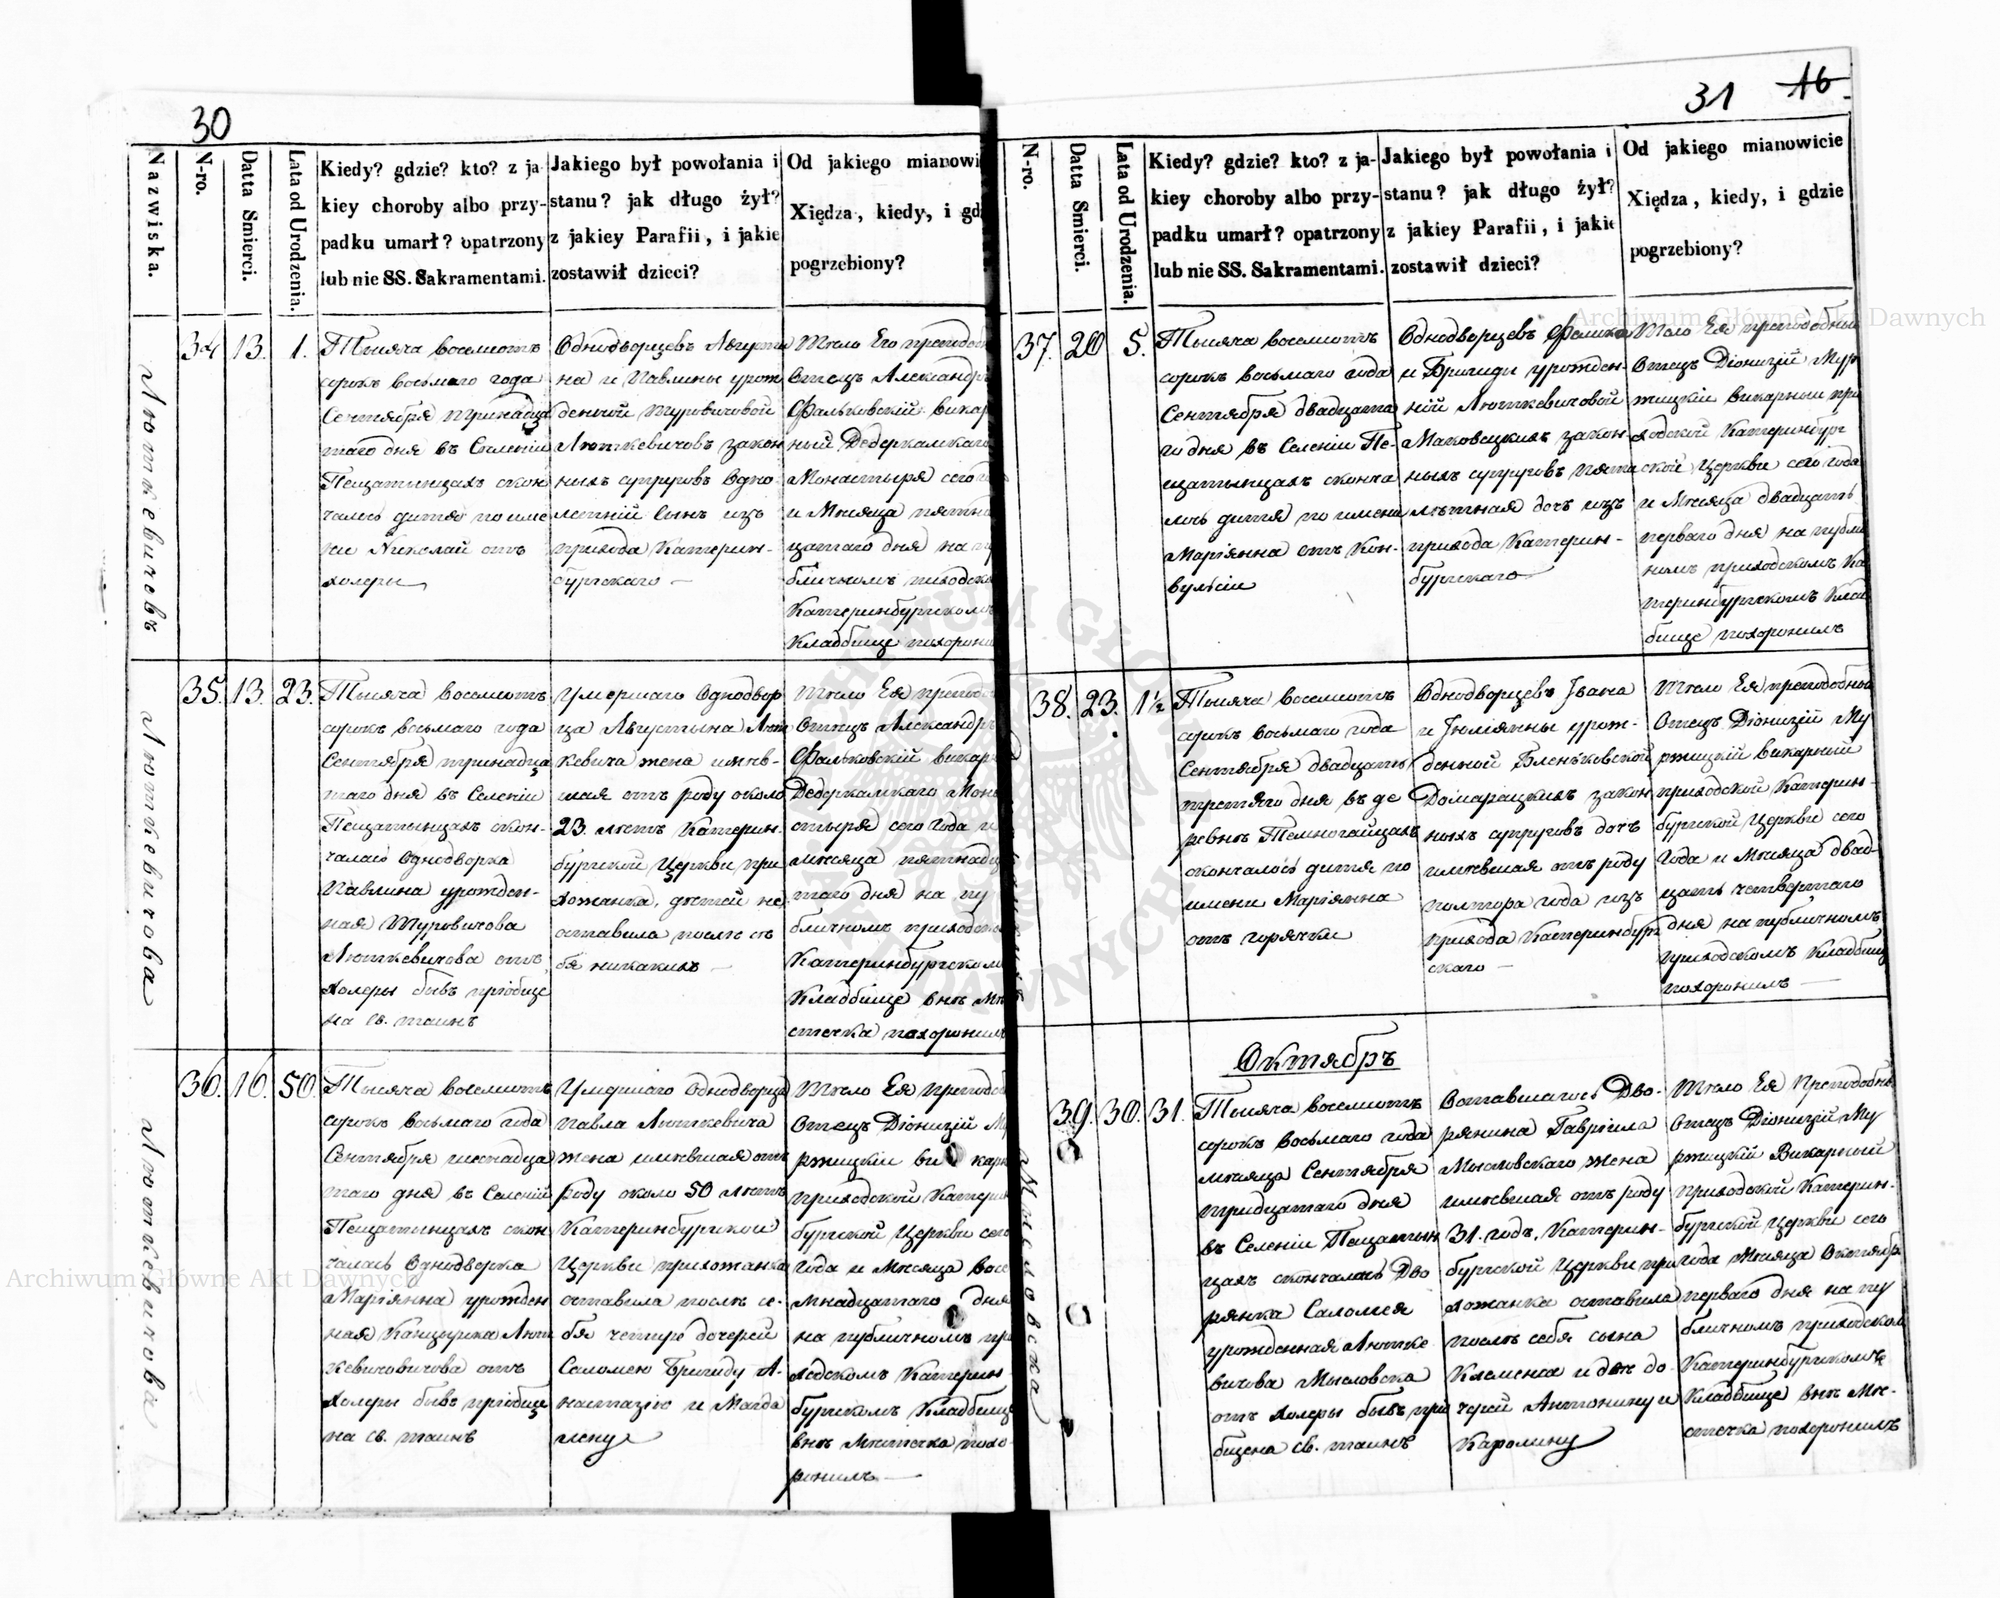 30
Nazwiska.
N-ro.
Datta Smierci.
Lata od Urodzenia.
Kiedy? gdzie? kto? z ja-
kiey choroby albo przy-
padku umarł? opatrzony
lub nie SS. Sakramentami.
Jakiego był powołania i
stanu? jak długo żył?
z jakiey Parafii, i jakie
zostawił dzieci?
Od jakiego mianowi
Xiędza, kiedy, i gd
pogrzebiony?
Люткевичевъ
34 13. 1.
Тысяча восемьсотъ
сорокъ восьмаго года
Сентября тринадца
таго дня въ Селеніи
Пещатинцахъ скон
чалось дитя по име
ни Николай отъ
холеры
Однодворцевъ Августи
на и Павлины урож
денной Туровичовой
Люткевичовъ закон
ныхъ супруговъ Одно-
летній сынъ изъ
прихода Катерин-
бургскаго —
Тѣло Его преподоб
Отецъ Александръ
Фальковскій викар
ный Дедеркалскаго
Монастыря сего го
и Мѣсяца пятна
цатаго дня на пу
бличномъ приходско
Катеринбургскомъ
Кладбище похорони
Люткевичова
35. 13. 23.
Тысяча восемьсотъ
сорокъ восьмаго года
Сентября тринадца
таго дня въ Селеніи
Пещатинцахъ скон-
чалась Однодворка
Павлина урожден-
ная Туровичова
Люткевичова отъ
холеры бывъ пріобще
на св. таинъ
Умершаго Однодвор
ца Августына Лют
кевича жена имѣв-
шая отъ роду около
23. лѣтъ Катерин-
бургской Церкви при
хожанка, дѣтей не
оставила послѣ се
бя никакихъ —
Тѣло Ея препод
Отецъ Александръ
Фальковскій викар
Дедеркалскаго Мона
стыря сего года и
мѣсяца пятнадца
таго дня на пу
бличномъ приходско
Катеринбургскомъ
Кладбище внѣ Мѣ
стечка похоронилъ
Люткевичова
36. 16. 50.
Тысяча восемьсотъ
сорокъ восьмаго года
Сентября шестнадца
таго дня въ Селеніи
Пещатинцахъ скон
чалась Однодворка
Маріянна урожден
ная Лют
кевичовичова отъ
холеры бывъ пріобще
на св. таинъ
Умершаго Однодворца
Павла Люткевича
жена имѣвшая отъ
роду около 50 лѣтъ
Катеринбургской
Церкви прихожанка
оставила послѣ се-
бя четыре дочерей
Саломею Бригиду А-
настазію и Магда
лену
Тѣло Ея преподоб
Отецъ Діонизій Му
ржицкій викарн
приходской Катерин
бургской Церкви сего
года и Мѣсяца восе
мнадцатаго дня
на публичномъ при
ходскомъ Катерин-
бургскомъ Кладбище
внѣ Мѣстечка похо-
ронилъ —
31 16
N-ro.
Datta Smierci.
Lata od Urodzenia.
Kiedy? gdzie? kto? z ja-
kiey choroby albo przy-
padku umarł? opatrzony
lub nie SS. Sakramentami.
Jakiego był powołania i
stanu? jak długo żył?
z jakiey Parafii, i jakie
zostawił dzieci?
Od jakiego mianowicie
Xiędza, kiedy, i gdzie
pogrzebiony?
37. 20 5.
Тысяча восемьсотъ
сорокъ восьмаго года
Сентября двадцата
го дня въ Селеніи Пе-
щатынцахъ сконча
лось дитя по имени
Маріянна отъ кон-
вульсіи
Однодворцевъ
и Бригиды урожден-
ной Люткевичовой
Маковецкихъ закон-
ныхъ супруговъ пяти
лѣтная дочь изъ
прихода Катерин-
бургскаго
Тѣло Ея преподобный
Отецъ Діонизій Мур
жицкій викарный при
ходской Катеринбург
ской Церкви сего года
и Мѣсяца двадцать
перваго дня на публи
номъ приходскомъ Ка
теринбургскомъ Клад
бище похоронилъ
38. 23. 1½
Тысяча восемьсотъ
сорокъ восьмаго года
Сентября двадцать
третяго дня въ де
ревнѣ Темногайцахъ
скончалось дитя по
имени Маріянна
отъ горячки
Однодворцевъ Ивана
и Іюліянны урож-
денной Бленьковской
Домарацкихъ закон
ныхъ супруговъ дочь
имѣвшая отъ роду
полтора года изъ
прихода Катеринбург
скаго —
Тѣло Ея преподобный
Отецъ Діонизій Му
ржицкій викарный
приходской Катерин-
бургской Церкви сего
Года и Мѣсяца двад-
цать четвертаго
дня на публичномъ
приходскомъ Кладбищ
похоронилъ —
Октябрь
Мысловска
39. 30. 31.
Тысяча восемьсотъ
сорокъ восьмаго года
мѣсяца Сентября
тридцатаго дня
въ Селеніи Пещатын
цахъ скончалась Дво
рянка Саломея
урожденная Лютке
вичова Мысловска
отъ холеры бывъ прио
бщена св. таинъ
Оставшагось Дво-
рянина Гавріила
Мысловскаго жена
имѣвшая отъ роду
31. годъ, Катерин-
бургской Церкви при
хожанка оставила
послѣ себя сына
Клеменса и двѣ до
черей Антонину и
Каролину
Тѣло Ея Преподобны
Отецъ Діонизій Му
ржицкій Викарный
приходской Катерин-
бургской Церкви сего
года Мѣсяца Октября
перваго дня на пу
бличномъ приходском
Катеринбургскомъ
Кладбище внѣ Мѣ-
стечка похоронилъ
Archiwum Główne Akt Dawnych
Archiwum Główne Akt Dawnych
ARCHIWUM GŁÓWNE AKT DAWNYCH